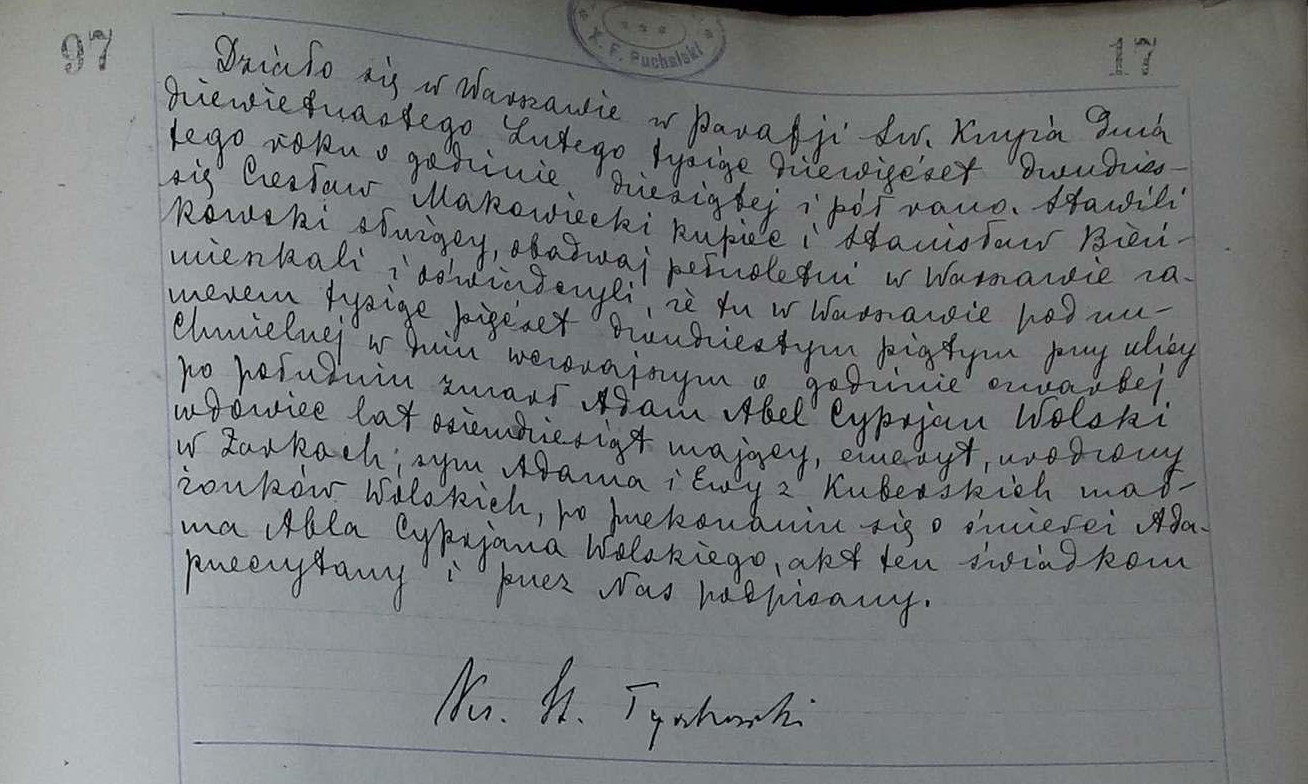 97
X. F. Puchalski
17
Działo się w Warszawie w Parafji Św. Krzyża dnia
dziewietnastego Lutego tysiąc dziewięćset dwudzies-
tego roku o godzinie dziesiątej i pół rano. Stawili
się Czesław Makowiecki kupiec i Stanisław Bień-
kowski służący, obadwaj pełnoletni w Warszawie za-
mieszkali i oświadczyli, że tu w Warszawie pod nu-
merem tysiąc pięćset dwudziestym piątym przy ulicy
Chmielnej w dniu wczorajszym o godzinie czwartej
po południu zmarł Adam Abel Cyprjan Wolski
wdowiec lat osiemdziesiąt mający, emeryt, urodzony
w Żarkach; syn Adama i Ewy z Kuberskich mał-
żonków Wolskich, po przekonaniu się o śmierci Ada-
ma Abla Cyprjana Wolskiego, akt ten świadkom
przeczytany i przez Nas podpisany.
St.